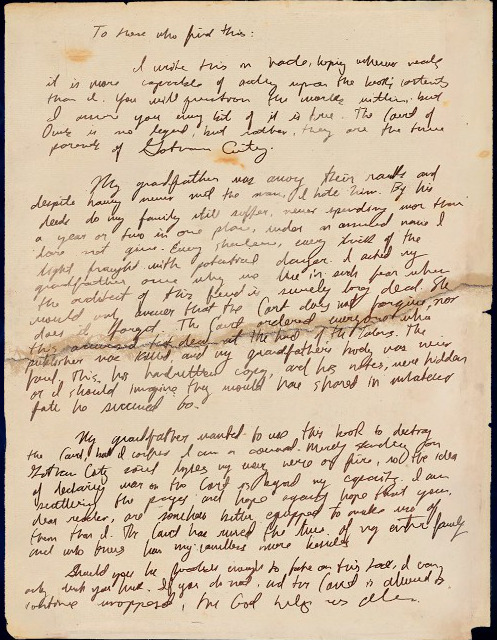 To those who find this:
I write this in haste, hoping whoever reads
it is more capable of acting upon the book's contents
than I. You will question the words within, but
I assure you every bit of it is true. The Court of
Owls is no legend, but rather, they are the true
parents of Gotham City.
My grandfather was among their ranks and
despite having never met the man, I hate him. By his
deeds do my family still suffer, never spending more than
a year or two in one place, under an assumed name I
dare not give. Every shadow, every trick of the
light fraught with potential danger. I asked my
grandfather once why we live in such fear when
the architect of this feud is surely long dead. She
would only answer that the Court does not forgive, nor
does it forget. The Court ordered everyone who
this dead at the hands of the Talons. The
publisher was killed and my grandfather's body was never
found. This, his handwritten copy, and his notes, were hidden
or I should imagine they would have shared in whatever
fate he succumbed to.
My grandfather wanted to use this book to destroy
the Court, but I confess I am a coward. Merely sending
Gotham City my were on fire, so the idea
of declaring war on the Court is beyond my capacity. I am
scattering the pages and hope against hope that you,
dear reader, are somehow better equipped to make use of
them than I. The Court has ruined the lives of my entire family
and who knows how many countless more besides.
Should you be foolish enough to take on this task, I can
only wish you luck. If you do not, and the Court is allowed to
continue unopposed, then God help us all.